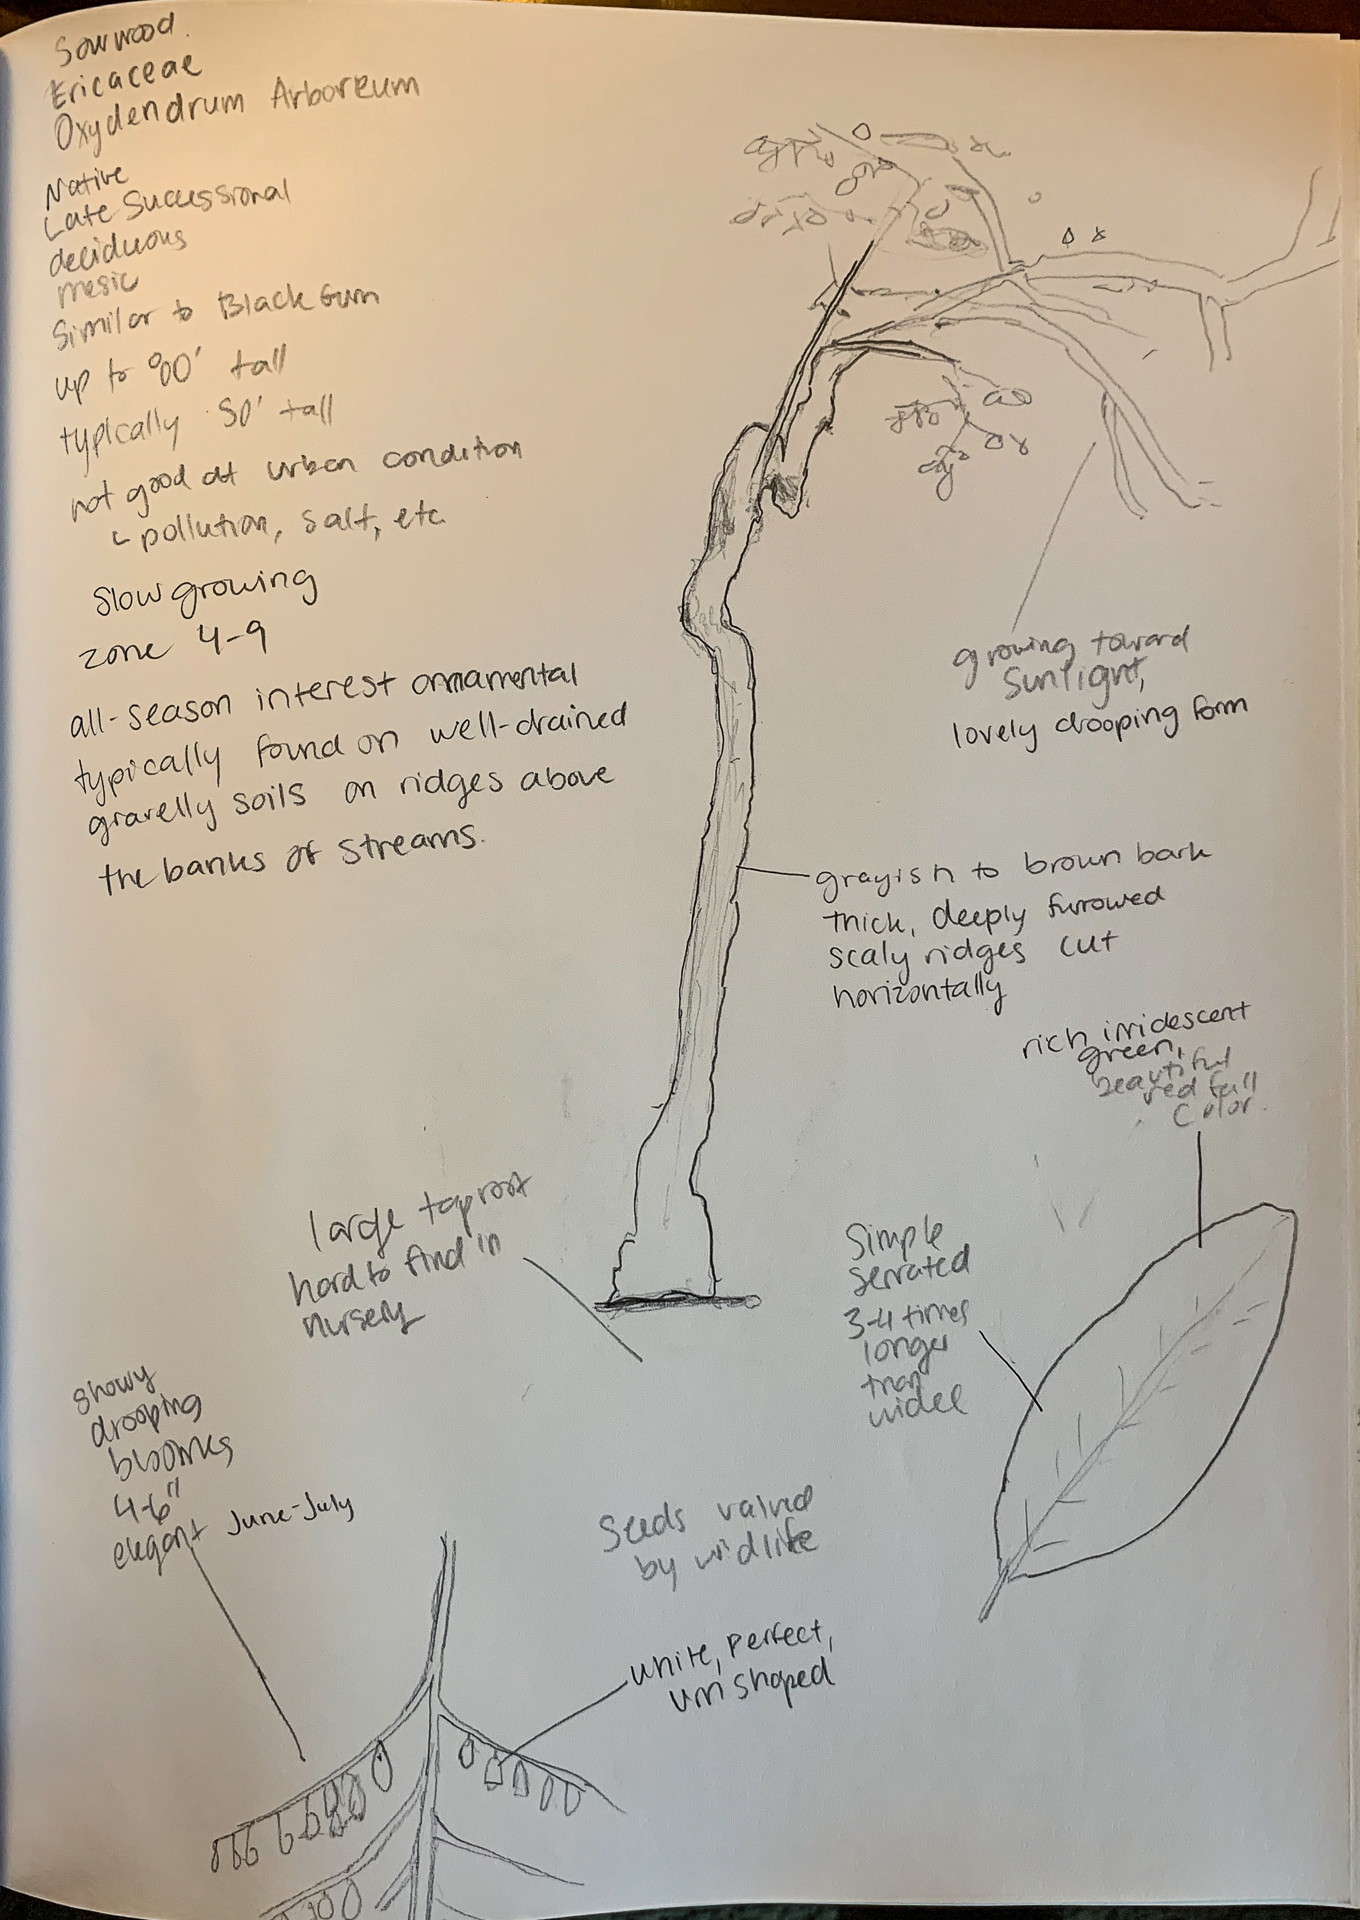 Sourwood.
Ericaceae
Oxydendrum Arboreum
Native
Late Successional
deciduous
mesic
Similar to Black Gum
up to 80' tall
typically 50' tall
not good at urban condition
↳ pollution, salt, etc.
slow growing
zone 4-9
all-season interest ornamental
typically found on well-drained
gravelly soils on ridges above
the banks of streams.
growing toward
sunlight,
lovely drooping form
grayish to brown bark
thick, deeply furrowed
scaly ridges cut
horizontally
rich irridescent
green,
beautiful
red fall
color.
large taproot
hard to find in
nursery
Simple
serrated
3-4 times
longer
than
widee
showy
drooping
blooms
4-6"
elegant June-July
Seeds valued
by widlife
white, perfect,
urn shaped